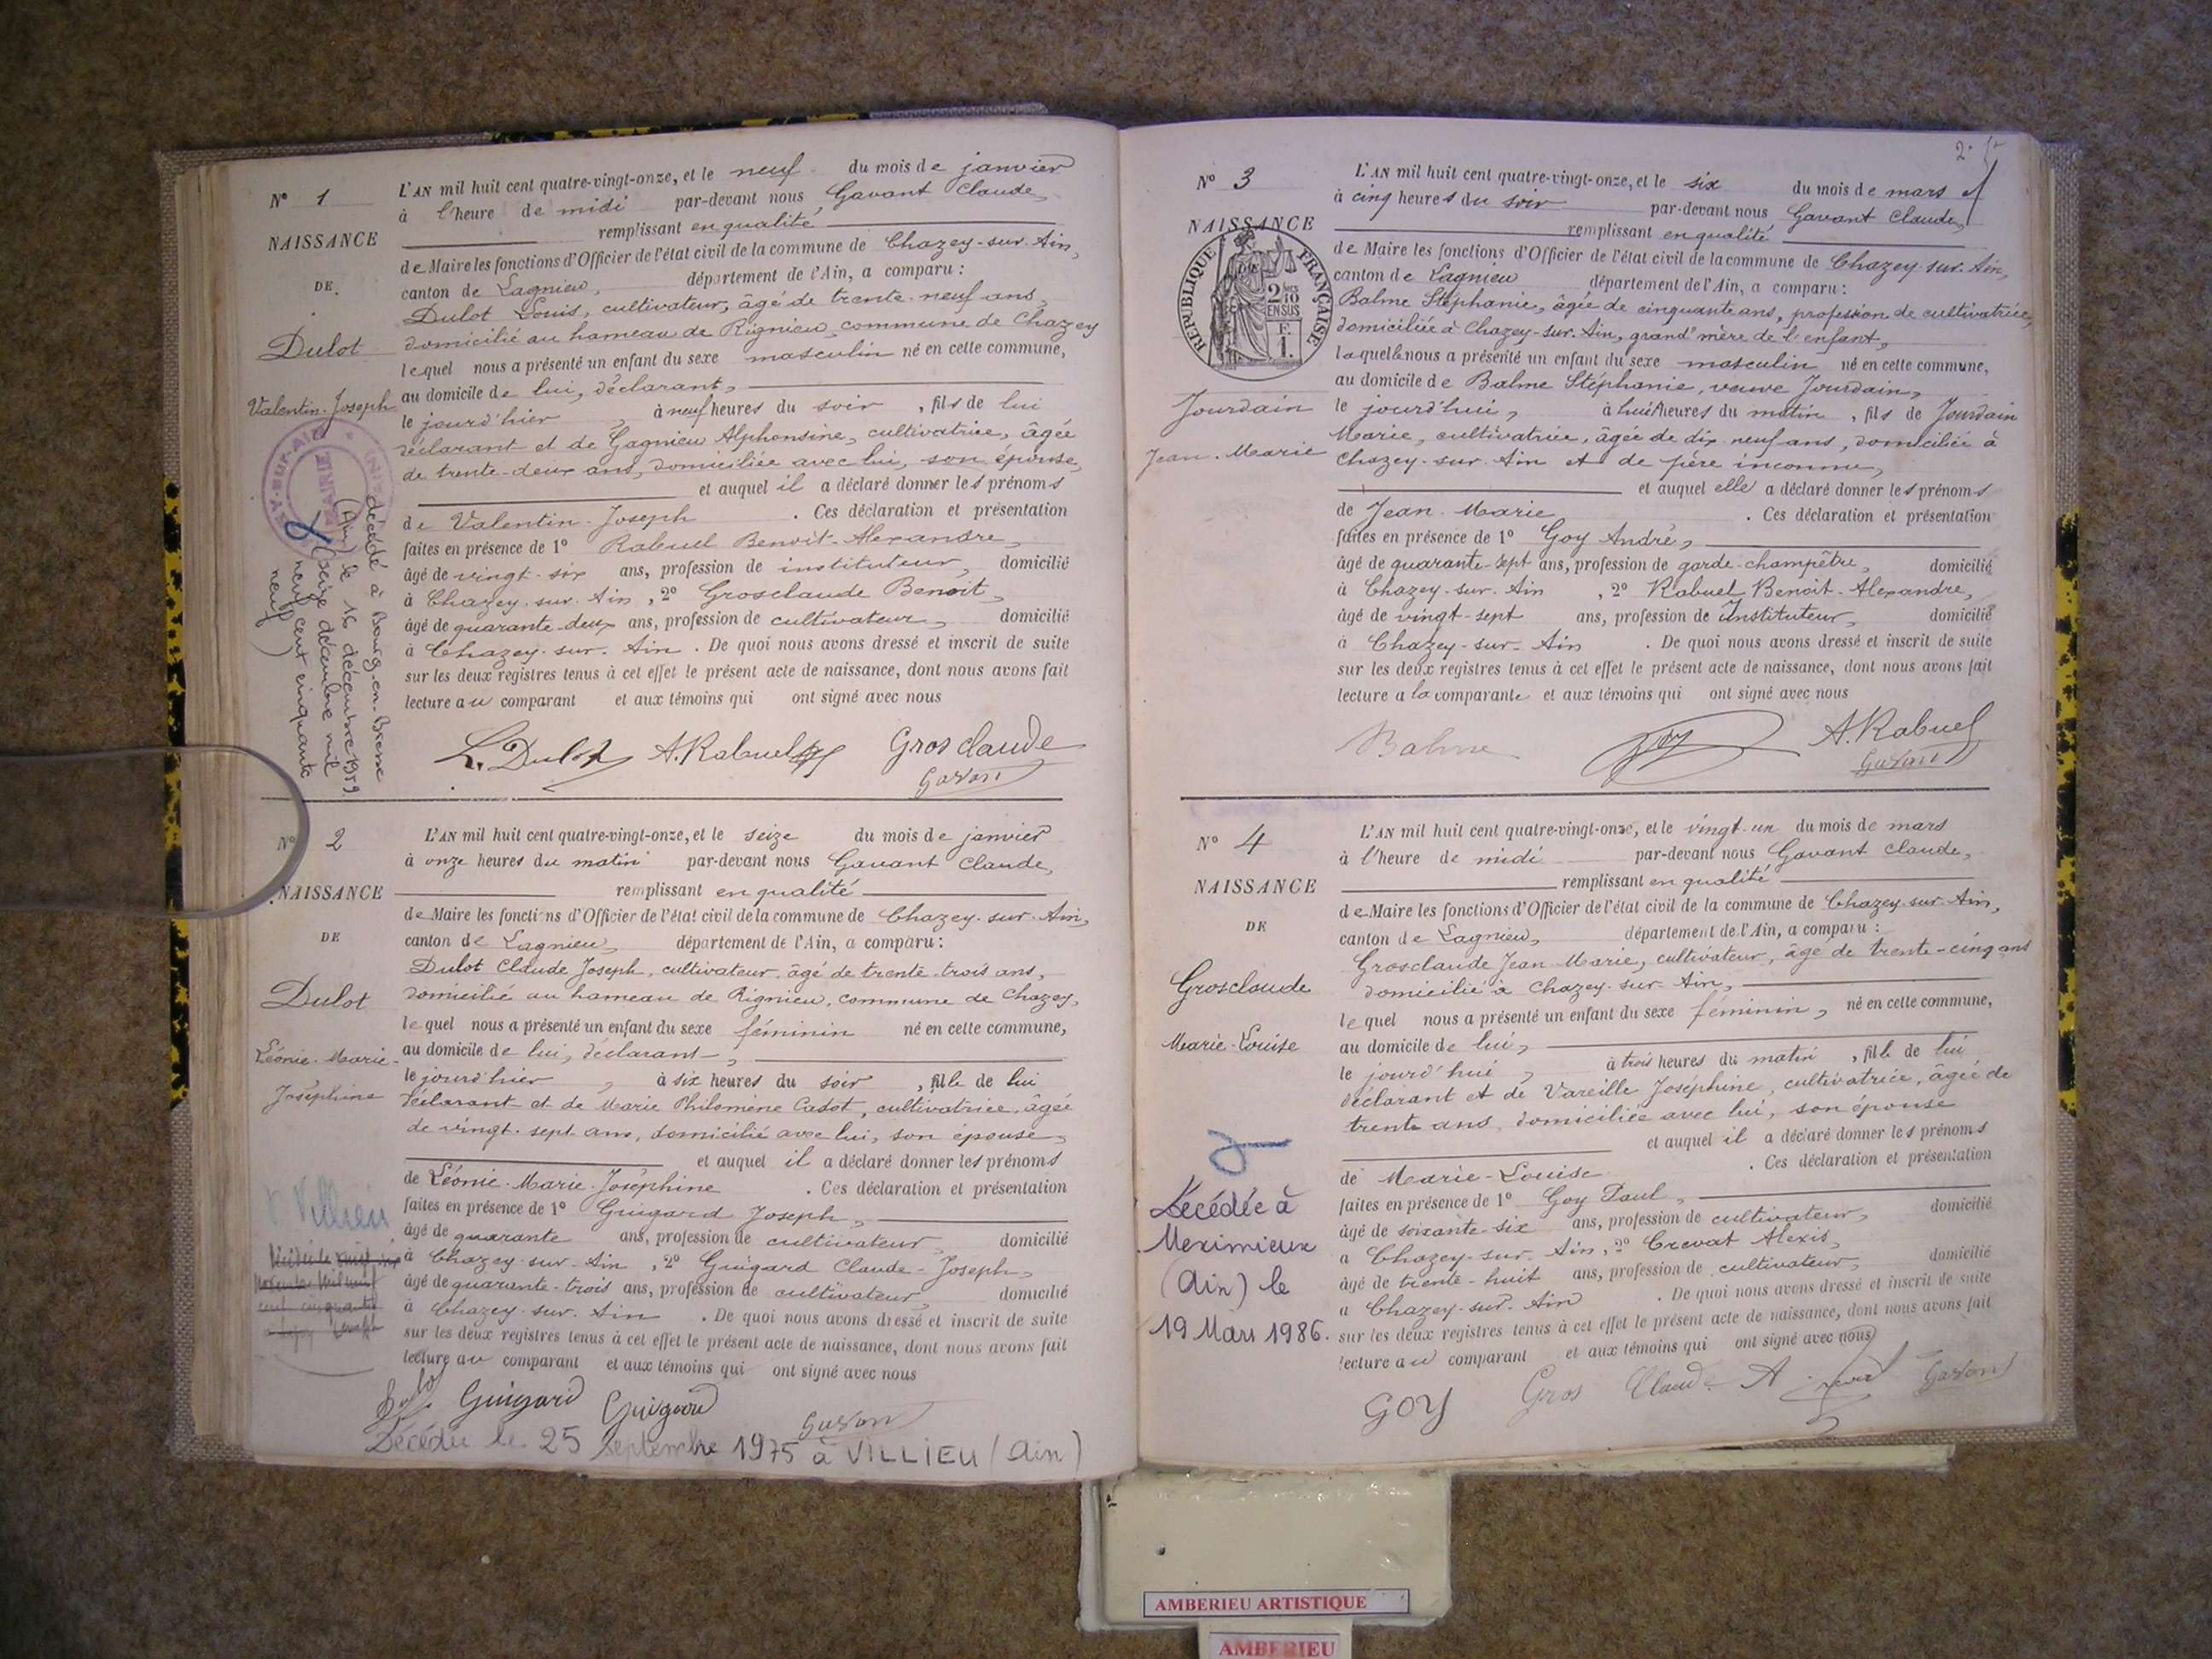 N° 1
NAISSANCE
DE
Dulot
Valentin-Joseph
décédé à Bourg-en-Bresse
(Ain) le 16 décembre 1959
(seize décembre mil
neuf cent cinquante
neuf)
MAIRIE
L'AN mil huit cent quatre-vingt-onze, et le neuf du mois de janvier
à l'heure de midi par-devant nous Gavant Claude,
remplissant en qualité
de Maire les fonctions d'Officier de l'état civil de la commune de Chazey-sur-Ain,
canton de Lagnieu, département de l'Ain, a comparu :
Dulot Louis, cultivateur, âgé de trente-neuf ans,
domicilié au hameau de Rignieu, commune de Chazey
lequel nous a présenté un enfant du sexe masculin né en cette commune,
au domicile de lui, déclarant,
le jourd'hier, à neuf heures du soir, fils de lui
déclarant et de Gagnieu Alphonsine, cultivatrice, âgée
de trente-deux ans, domiciliée avec lui, son épouse,
et auquel il a déclaré donner les prénoms
de Valentin-Joseph. Ces déclaration et présentation
faites en présence de 1° Rabuel Benoit-Alexandre,
âgé de vingt-six ans, profession de instituteur, domicilié
à Chazey-sur-Ain, 2° Grosclaude Benoit,
âgé de quarante-deux ans, profession de cultivateur, domicilié
à Chazey-sur-Ain. De quoi nous avons dressé et inscrit de suite
sur les deux registres tenus à cet effet le présent acte de naissance, dont nous avons fait
lecture au comparant et aux témoins qui ont signé avec nous
L. Dulot A. Rabuel Grosclaude
Gavant
N° 2
NAISSANCE
DE
Dulot
Léonie-Marie-
Joséphine
V. Villieu
L'AN mil huit cent quatre-vingt-onze, et le seize du mois de janvier
à onze heures du matin par-devant nous Gavant Claude,
remplissant en qualité
de Maire les fonctions d'Officier de l'état civil de la commune de Chazey-sur-Ain,
canton de Lagnieu, département de l'Ain, a comparu :
Dulot Claude Joseph, cultivateur, âgé de trente-trois ans,
domicilié au hameau de Rignieu, commune de Chazey,
lequel nous a présenté un enfant du sexe féminin né en cette commune,
au domicile de lui, déclarant,
le jourd'hier, à six heures du soir, fille de lui
déclarant et de Marie Philomène Cadot, cultivatrice, âgée
de vingt-sept ans, domicilié avec lui, son épouse,
et auquel il a déclaré donner les prénoms
de Léonie-Marie-Joséphine. Ces déclaration et présentation
faites en présence de 1° Guigard Joseph,
âgé de quarante ans, profession de cultivateur, domicilié
à Chazey-sur-Ain, 2° Guigard Claude-Joseph,
âgé de quarante-trois ans, profession de cultivateur, domicilié
à Chazey-sur-Ain. De quoi nous avons dressé et inscrit de suite
sur les deux registres tenus à cet effet le présent acte de naissance, dont nous avons fait
lecture au comparant et aux témoins qui ont signé avec nous
Guigard Guigard Gavant
Décédée le 25 septembre 1975 à VILLIEU (Ain)
N° 3
NAISSANCE
DE
RÉPUBLIQUE FRANÇAISE
2/10
EN SUS
F.
1.
Jourdain
Jean-Marie
L'AN mil huit cent quatre-vingt-onze, et le six du mois de mars
à cinq heures du soir par-devant nous Gavant Claude,
remplissant en qualité
de Maire les fonctions d'Officier de l'état civil de la commune de Chazey-sur-Ain,
canton de Lagnieu département de l'Ain, a comparu :
Balme Stéphanie, âgée de cinquante ans, profession de cultivatrice,
domiciliée à Chazey-sur-Ain, grand'mère de l'enfant,
laquelle nous a présenté un enfant du sexe masculin né en cette commune,
au domicile de Balme Stéphanie, veuve Jourdain,
le jourd'hui, à huit heures du matin, fils de Jourdain
Marie, cultivatrice, âgée de dix-neuf ans, domiciliée à
Chazey-sur-Ain et de père inconnu,
et auquel elle a déclaré donner les prénoms
de Jean-Marie. Ces déclaration et présentation
faites en présence de 1° Goy André,
âgé de quarante-sept ans, profession de garde-champêtre, domicilié
à Chazey-sur-Ain, 2° Rabuel Benoit-Alexandre,
âgé de vingt-sept ans, profession de Instituteur, domicilié
à Chazey-sur-Ain. De quoi nous avons dressé et inscrit de suite
sur les deux registres tenus à cet effet le présent acte de naissance, dont nous avons fait
lecture a la comparante et aux témoins qui ont signé avec nous
Balme Goy A. Rabuel
Gavant
N° 4
NAISSANCE
DE
Grosclaude
Marie-Louise
Décédée à
Meximieux
(Ain) le
19 Mars 1986.
L'AN mil huit cent quatre-vingt-onze, et le vingt-un du mois de mars
à l'heure de midi par-devant nous Gavant Claude,
remplissant en qualité
de Maire les fonctions d'Officier de l'état civil de la commune de Chazey-sur-Ain,
canton de Lagnieu, département de l'Ain, a comparu :
Grosclaude Jean-Marie, cultivateur, âgé de trente-cinq ans
domicilié à Chazey-sur-Ain,
lequel nous a présenté un enfant du sexe féminin, né en cette commune,
au domicile de lui,
le jourd'hui, à trois heures du matin, fille de lui
déclarant et de Vareille Joséphine, cultivatrice, âgée de
trente ans, domiciliée avec lui, son épouse
et auquel il a déclaré donner les prénoms
de Marie-Louise. Ces déclaration et présentation
faites en présence de 1° Goy Paul,
âgé de soixante-six ans, profession de cultivateur, domicilié
a Chazey-sur-Ain, 2° Crevat Alexis,
âgé de trente-huit ans, profession de cultivateur, domicilié
a Chazey-sur-Ain. De quoi nous avons dressé et inscrit de suite
sur les deux registres tenus à cet effet le présent acte de naissance, dont nous avons fait
lecture au comparant et aux témoins qui ont signé avec nous
GOY Gros Claude A Gavant
AMBERIEU ARTISTIQUE
AMBERIEU